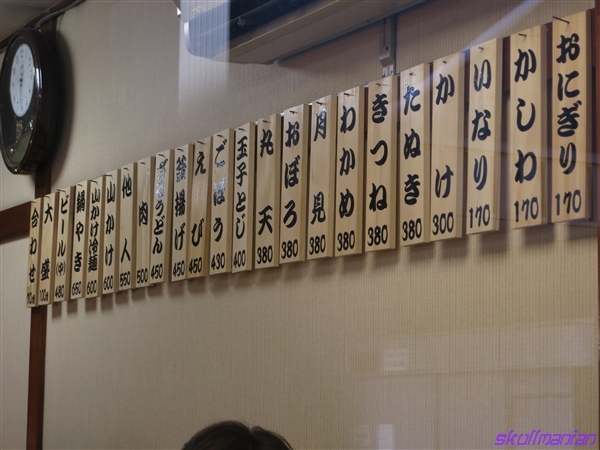 おにぎり 170
かしわ 170
いなり 170
かけ 300
たぬき 380
きつね 380
わかめ 380
月見 380
おぼろ 380
丸天 380
玉子とじ 400
ごぼう 430
えび 450
釜揚げ 450
うどん 450
肉 500
他人 550
山かけ 500
山かけ冷麺 600
鍋やき 650
ビール(中) 480
大盛
合わせ
skullmanian